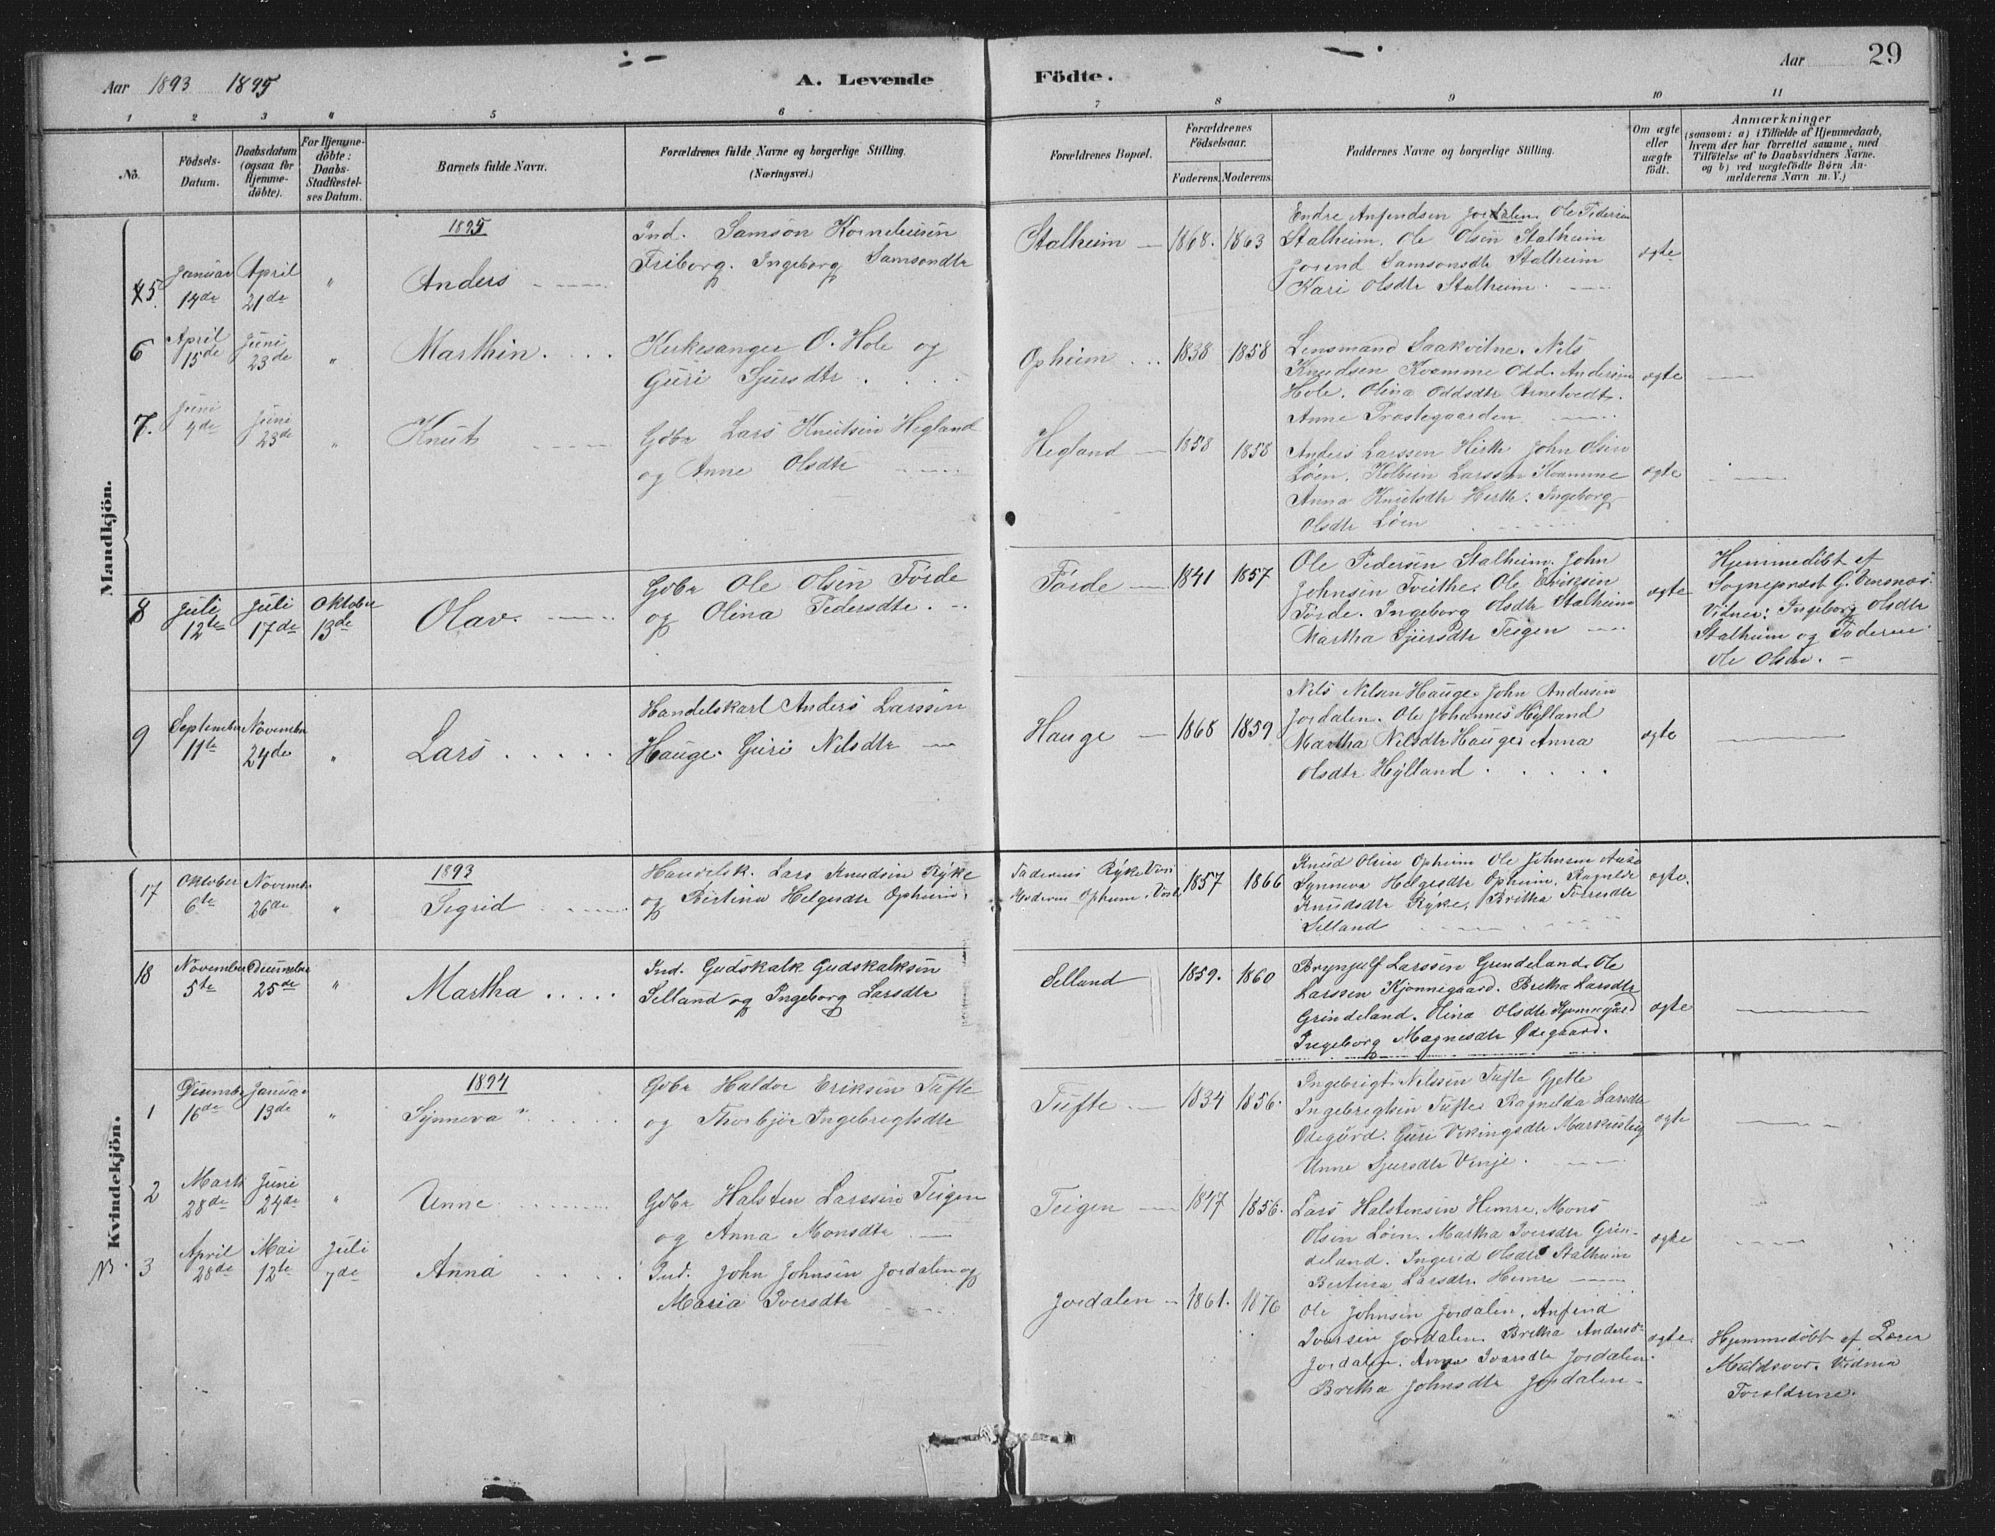 Aar 1893 1895
A. Levende
Födte.
Aar
29
1 2 3 4 5 6 7 8 9 10 11
No.
Födsels-
Datum.
Daabsdatum
(ogsaa for
Hjemme-
döbte).
For Hjemme-
döbte:
Daabs-
Stadfæstel-
ses Datum.
Barnets fulde Navn.
Forældrenes fulde Navne og borgerlige Stilling.
(Næringsvei.)
Forældrenes Bopæl.
Forældrenes
Födselsaar.
Faderens. Moderens.
Faddernes Navne og borgerlige Stilling.
Om ægte
eller
uægte
födt.
Anmærkninger
(saasom: a) i Tilfælde af Hjemmedaab,
hvem der har forrettet samme, med
Tilföielse af to Daabsvidners Navne.
og b) ved uægtefödte Börn An-
melderens Navn m. V.)
Mandkjön.
1895
5. Januar
14de
April
21de
"
Anders
Ind. Samson Korneliusen
Friborg. Ingeborg Samsondtr
Stalheim
1868. 1863
Endre Anfindsen Jordalen. Ole Pedersen
Stalheim. Ole Olsen Stalheim
Jorend Samsonsdtr Stalheim
Kari Olsdtr Stalheim.
ægte
6 April
15de
Juni
23de
"
Marthin.
Kirkesanger O. Hole og
Guri Sjursdtr
Opheim
1838 1858
Lensmand Saakvitne. Nils
Knudsen Kvamme Odd. Andersen
Hole. Olina Oddsdtr Arnetvedt.
Anne Prestegaarden
ægte
7. Juni
4de
Juni
23de
"
Knut
Gdbr Lars Knutsen Hegland
og Anne Olsdtr
Hegland
1858 1858
Anders Larssen Hirth John Olsen
Löen. Kolbein Larssen Kvamme
Anna Knutsdtr Hirth. Ingeborg
Olsdtr Löen
ægte
8 Juli
12te
Juli
17de
Oktober
13de
Olav.
Gdbr Ole Olsen Förde
og Olina Pedersdtr.
Förde
1841 1857
Ole Pedersen Stalheim. John
Johnsen Tvithe. Ole Eriksen
Förde. Ingeborg Olsdtr Stalheim
Martha Sjursdtr Teigen
ægte
Hjemmedöbt af
Sogneprest G.
Vidner: Ingeborg Olsdtr
Stalheim og Faderen
Ole Olsen.
9 September
11te
November
24de
"
Lars
Handelskarl Anders Larssen
Hauge. Guri Nilsdtr
Hauge
1868 1859
Nils Nilsen Hauge. John Andersen
Jordalen. Ole Johannes Hylland
Martha Nilsdtr Hauge. Anna
Olsdtr Hylland.
ægte
Kvindekjön.
1893
17 Oktober
6te
November
26de
"
Sigrid
Handelsk. Lars Knudsen Ryke
og Bertina Helgesdtr Opheim.
Faderens Ryke Vos
Moderens Opheim Vos
1857 1866
Knud Olsen Opheim Ole Johnsen
Synneva Helgesdtr Opheim. Ragnilde
Knudsdtr Ryke. Britha
Selland
ægte.
18 November
5te
December
25de
"
Martha
Ind. Gudskalk Gudskalksen
Selland og Ingeborg Larsdtr
Selland
1859. 1860
Brynjulf Larssen Grindeland. Ole
Larssen Kjönnegaard. Britha Larsdtr
Grindeland. Olina Olsdtr Kjønnegård
Ingeborg Magnesdtr Ödegaard.
ægte
1894
1 December
16de
Januar
13de
"
Synneva
Gdbr Haldor Eriksen Tufte
og Thorbjör Ingebrigtsdtr
Tufte
1834 1856.
Ingebrigt Nilssen Tufte Gjetle
Ingebrigtsen Tufte. Ragnilda Larsdtr
Ödegård. Guri Vikingsdtr
Anne Sjursdtr Vinje.
ægte
2 Marts
28de
Juni
24de
"
Anne
Gdbr Halsten Larssen Teigen
og Anna Monsdtr
Teigen
1847 1856.
Lars Halstensen Himre. Mons
Olsen Löen. Martha Iversdtr Grin-
deland. Ingerid Olsdtr Stalheim
Bertina Larsdtr. Himre
ægte
NB. 3 April
28de
Mai
12te
Juli
7de
Anna
Ind. John Johnsen Jordalen og
Maria Iversdtr
Jordalen
1861. 1876
Ole Johnsen Jordalen. Anfind
Iversen Jordalen. Britha Andersd.
Jordalen. Anna Ivarsdtr Jordalen.
Britha Johnsdtr Jordalen
ægte.
Hjemmedöbt af Lærer
Muldsvor. Vidner
Foreldrene.